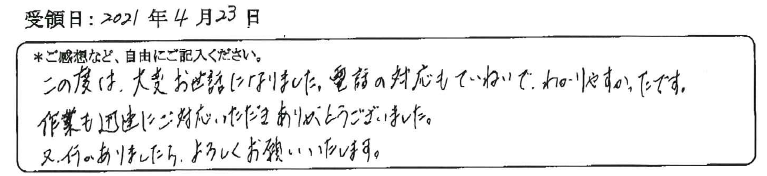 受領日：2021年4月23日
＊ご感想など、自由にご記入ください。
この度は、大変お世話になりました。電話の対応もていねいで、わかりやすかったです。
作業も迅速にご対応いただきありがとうございました。
又、何かありましたら、よろしくお願いいたします。